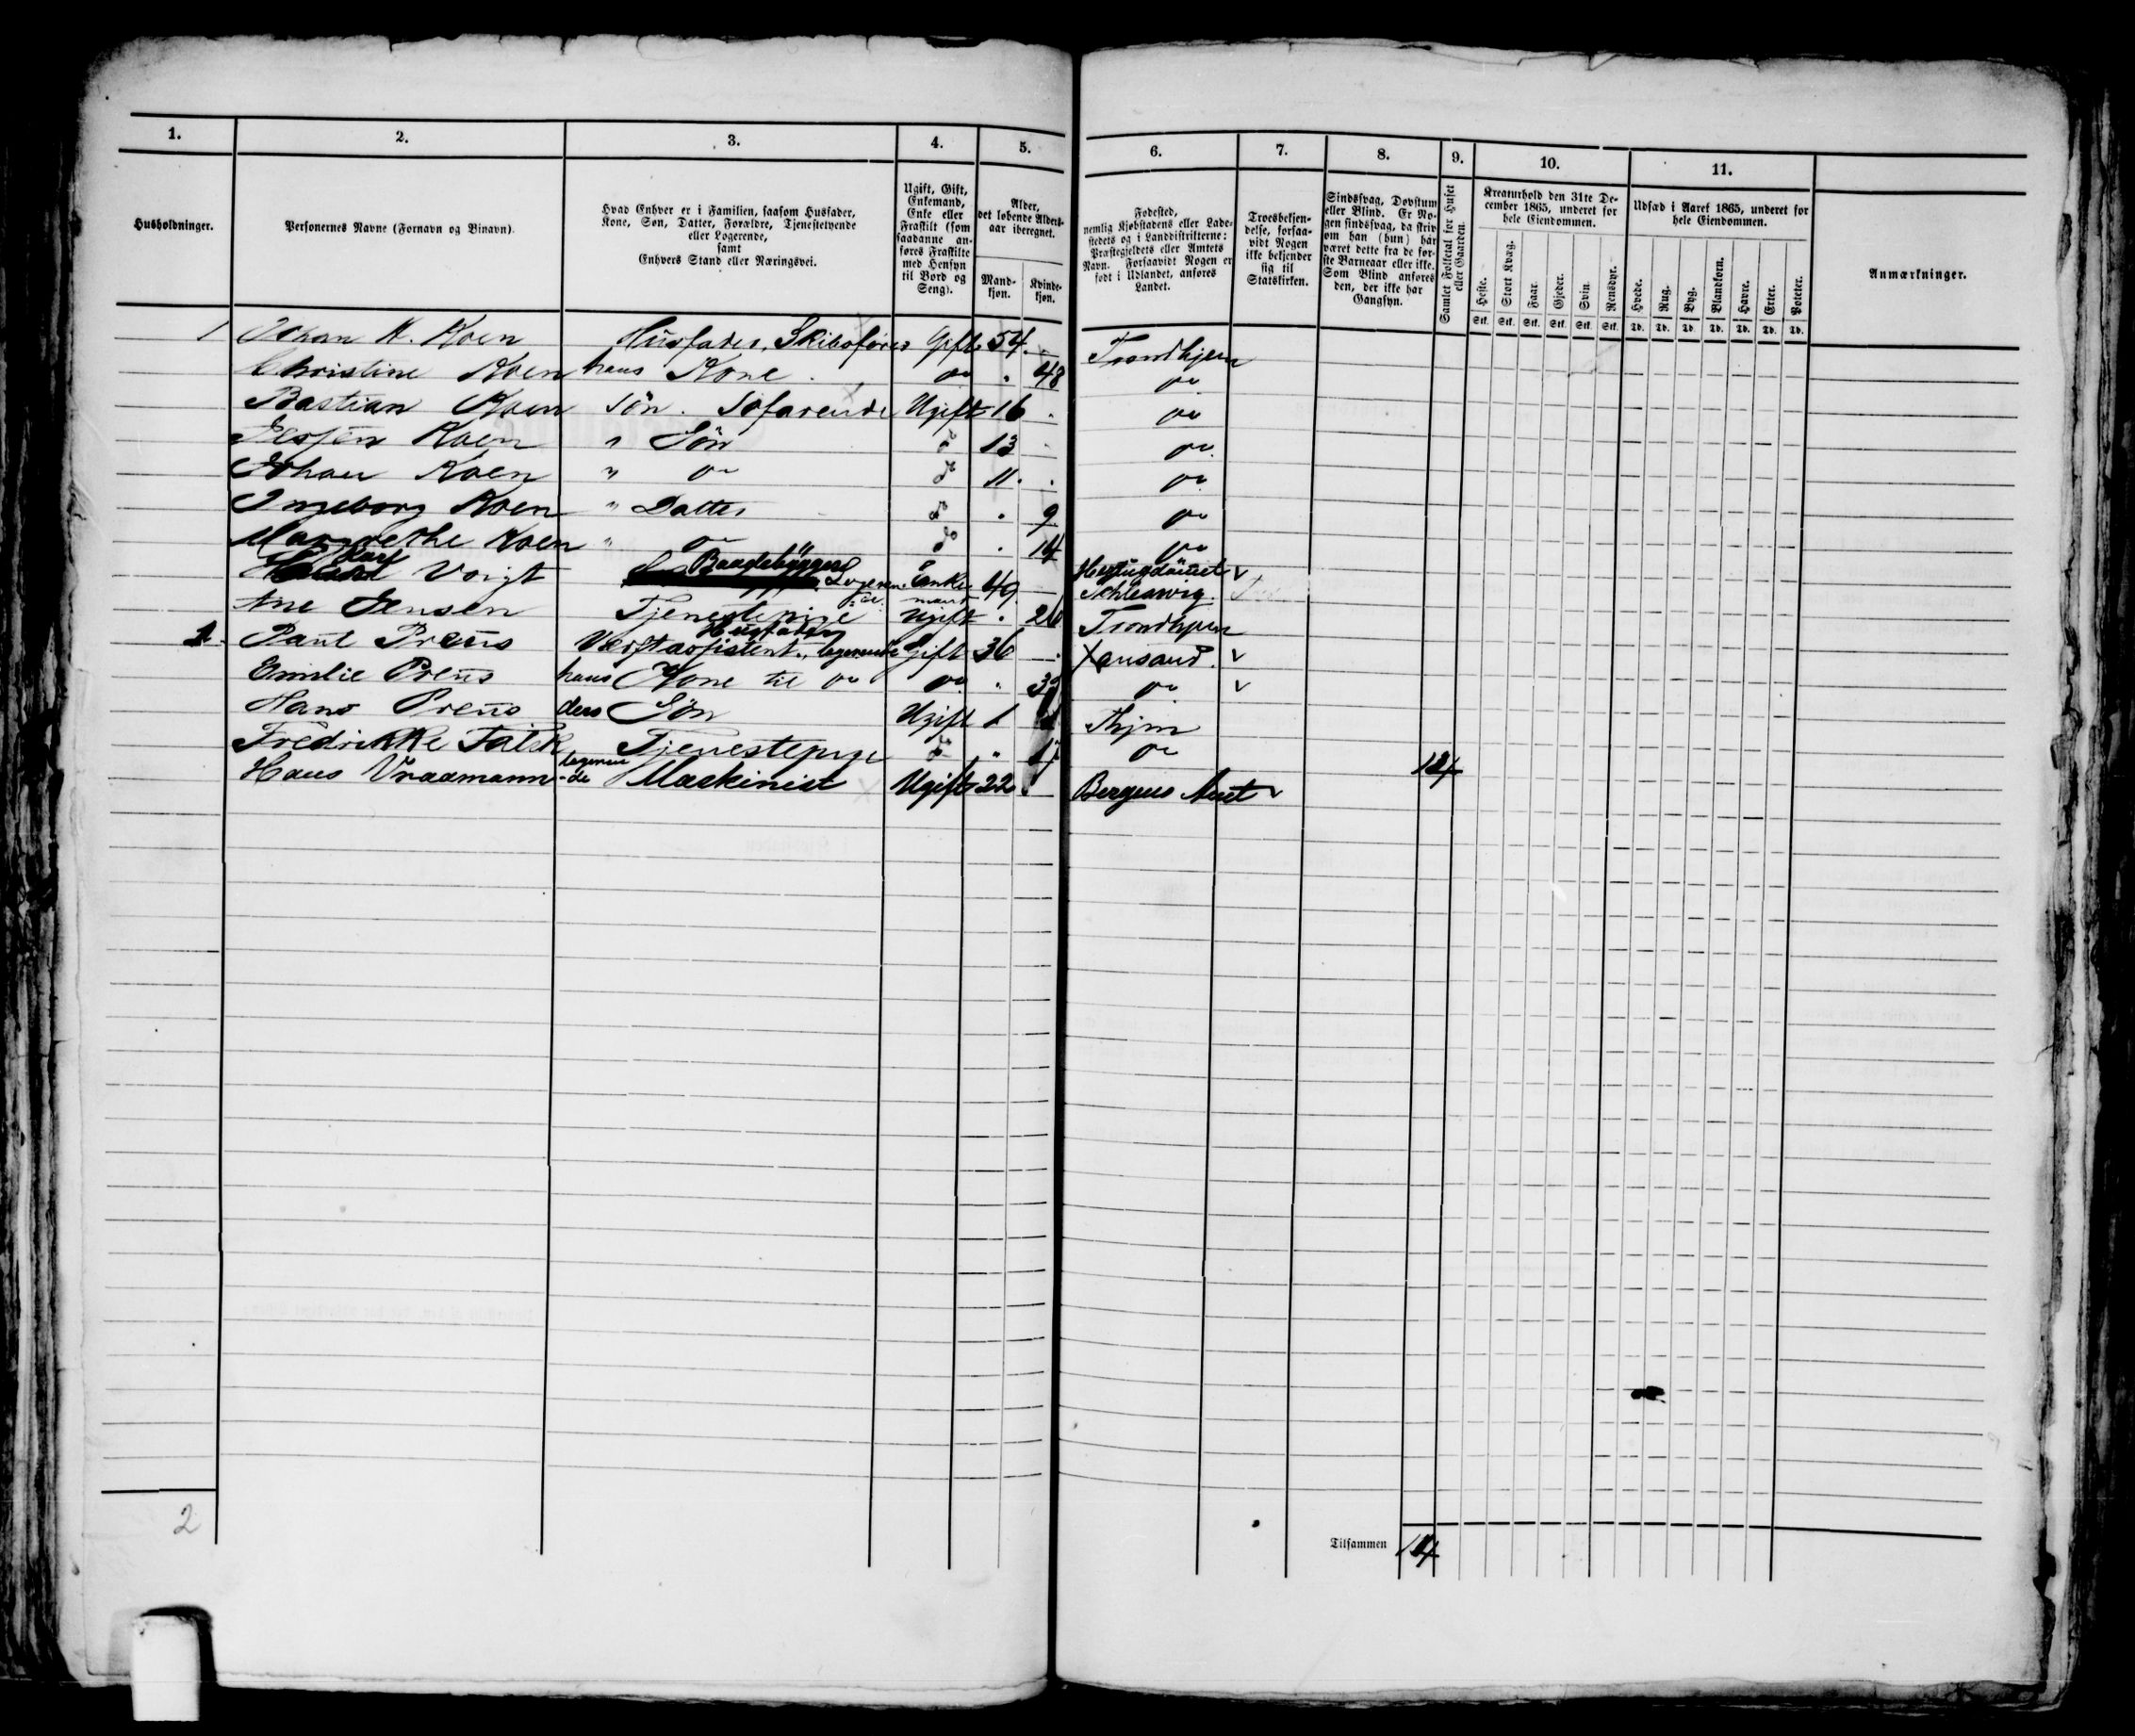 1.
2.
3.
4.
5.
6.
7.
8.
9.
10.
11.
Husholdninger.
Personernes Navne (Fornavn og Binavn).
Hvad Enhver er i Familien, saasom Husfader,
Kone, Søn, Datter, Forældre, Tjenestetyende
eller Logerende,
samt
Enhvers Stand eller Næringsvei.
Ugift, Gift,
Enkemand,
Enke eller
Fraskilt (som
saadanne an-
føres Fraskilte
med Hensyn
til Bord og
Seng).
Alder,
det løbende Alders-
aar iberegnet.
Mand-
kjøn.
Kvinde-
kjøn.
Fødested,
nemlig Kjøbstadens eller Lade-
stedets og i Landdistrikterne:
Præstegjeldets eller Amtets
Navn. Forsaavidt Nogen er
født i Udlandet, anføres
Landet.
Troesbekjen-
delse, forsaa-
vidt Nogen
ikke bekjender
sig til
Statskirken.
Sindssvag, Døvstum
eller Blind. Er No-
gen sindssvag, da skriv
om han (hun) har
været dette fra de før-
ste Barneaar eller ikke.
Som Blind anføres
den, der ikke har
Gangsyn.
Samlet Folketal for Huset
eller Gaarden.
Kreaturhold den 31te De-
cember 1865, underet for
hele Eiendommen.
Heste.
Stort Kvæg.
Faar.
Gjeder.
Svin.
Rensdyr.
Stk. Stk. Stk. Stk. Stk. Stk.
Udsæd i Aaret 1865, underet for
hele Eiendommen.
Hvede.
Rug.
Byg.
Blandkorn.
Havre.
Erter.
Poteter.
Td. Td. Td. Td. Td. Td. Td.
Anmærkninger.
1 Johan K. Koen Husfader, Skibsfører Gift 54 Trondhjem
Christine Koen hans Kone do 48 do
Bastian Koen Søn. Søfarende Ugift 16 do
Koen " Søn do 13 do
Johan Koen " do do 11 do
Ingeborg Koen " Datter do 9 do
Margrethe Koen " do do 14 do
Karl Voigt Baadebygger Logeren-de Enkemand 49 Hertugdømet Schleswig
Ane Jensen Tjenestepige Ugift 26 Trondhjem
1 Paul Preus Husfader Verftassistent, logerende Gift 36 Xansand
Emilie Preus hans Kone til do do do
Hans Preus ders Søn Ugift 1 Thjm
Fredrikke Falck Tjenestepige do 17 do 14
Hans Vraamann logerende Maskinist Ugift 22 Bergens Amt
2
Tilsammen 14